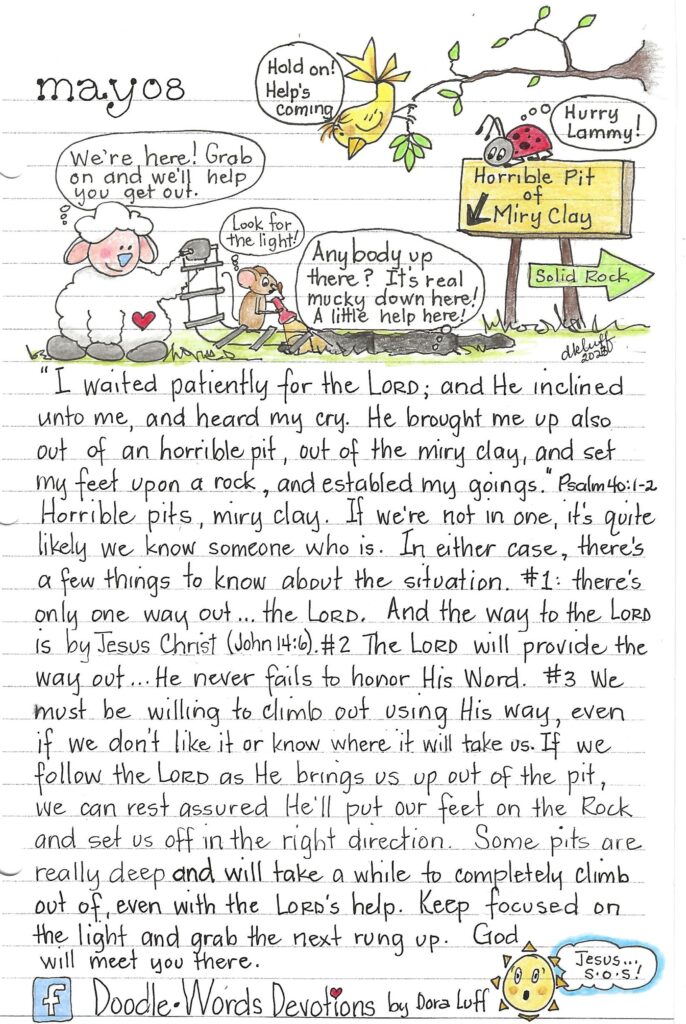 may 08
Hold on!
Help's
coming
Hurry
Lammy!
We're here! Grab
on and we'll help
you get out.
Horrible Pit
of
Miry Clay
Look for
the light!
Anybody up
there? It's real
mucky down here!
A little help here!
Solid Rock
dkluff
2023
"I waited patiently for the LORD; and He inclined
unto me, and heard my cry. He brought me up also
out of an horrible pit, out of the miry clay, and set
my feet upon a rock, and establed my goings." Psalm 40:1-2
Horrible pits, miry clay. If we're not in one, it's quite
likely we know someone who is. In either case, there's
a few things to know about the situation. #1: there's
only one way out... the LORD. And the way to the LORD
is by Jesus Christ (John 14:6). #2 The LORD will provide the
way out... He never fails to honor His Word. #3 We
must be willing to climb out using His way, even
if we don't like it or know where it will take us. If we
follow the LORD as He brings us up out of the pit,
we can rest assured He'll put our feet on the Rock
and set us off in the right direction. Some pits are
really deep and will take a while to completely climb
out of, even with the LORD's help. Keep focused on
the light and grab the next rung up. God
will meet you there.
Jesus...
S·O·S!
f Doodle·Words Devotions by Dora Luff